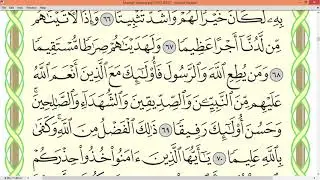 بِهِۦ لَكَانَ خَيْرًا لَّهُمْ وَأَشَدَّ تَثْبِيتًا ٦٦ وَإِذًا لَّأٓتَيْنَٰهُم
مِّن لَّدُنَّآ أَجْرًا عَظِيمًا ٦٧ وَلَهَدَيْنَٰهُمْ صِرَٰطًا مُّسْتَقِيمًا
٦٨ وَمَن يُطِعِ ٱللَّهَ وَٱلرَّسُولَ فَأُو۟لَٰٓئِكَ مَعَ ٱلَّذِينَ أَنْعَمَ ٱللَّهُ
عَلَيْهِم مِّنَ ٱلنَّبِيِّـۧنَ وَٱلصِّدِّيقِينَ وَٱلشُّهَدَآءِ وَٱلصَّٰلِحِينَ ۚ
وَحَسُنَ أُو۟لَٰٓئِكَ رَفِيقًا ٦٩ ذَٰلِكَ ٱلْفَضْلُ مِنَ ٱللَّهِ ۚ وَكَفَىٰ
بِٱللَّهِ عَلِيمًا ٧٠ يَٰٓأَيُّهَا ٱلَّذِينَ ءَامَنُوا۟ خُذُوا۟ حِذْرَكُمْ